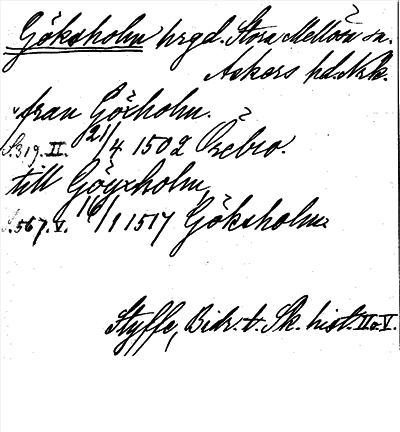 Göksholm hrgd. Stora Mellösa sn.
Askers hd. Nrk.
"från Göxholm.
S. 319. II. 21/4 1502 Örebro.
till Göyxholm,
S. 567. V. 16/1 1517 Göksholm.
Styffe, Bidr. t. Sk. hist. II o. V.